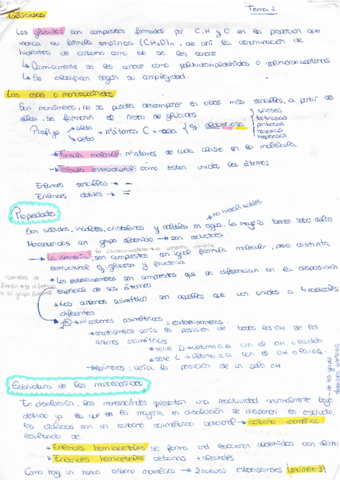 Glúcidos
Tema 2
Los glúcidos son compuestos formados por C, H y O en la proporción que
indica su fórmula empírica (CH₂O)n, de ahí la denominación de
hidratos de carbono como se les conoce
→ Químicamente se les conoce como polihidroxialdehídos o polihidroxicetonas
→ Se clasifican según su complejidad.
Las osas o monosacáridos
Son monómeros, no se pueden descomponer en otros más sencillos, a partir de
ellos se forman el resto de glúcidos
Prefijo aldo ceto + nº átomos C + osa
triosas
tetrosas
pentosas
hexosas
heptosas
→ Fórmula molecular: nº átomos de cada clase en la molécula
→ Fórmula estructural: cómo están unidos los átomos
Enlaces sencillos → −
Enlaces dobles → =
Propiedades
Son sólidos, incoloros, cristalinos y solubles en agua, la mayoría tienen sabor dulce
Monosacáridos con grupo aldehído → son reductores
→ La isomería, son compuestos con igual fórmula molecular, pero distinta
estructural ej glucosa y fructosa
→ Los estereoisómeros son compuestos que se diferencian en la disposición
espacial de sus átomos
→ Los carbonos asimétricos son aquellos que van unidos a 4 radicales
diferentes
nº carbonos asimétricos = estereoisómeros
→ enantiómeros varía la posición de todos los OH de los
carbonos asimétricos
→ serie D → último a.c con el OH a la dch
→ serie L → último a.c con el OH a la izq.
→ epímeros, varía la posición de un solo OH
Estructura de los monosacáridos
En disolución, los monosacáridos presentan una reactividad anormalmente baja
debido a que en la mayoría en disolución se disponen en estructuras
cíclicas con un carbono asimétrico adicional → carbono anomérico
resultado de
→ Enlaces hemiacetales se forma una reacción aldehídos con alcohol
→ Enlaces hemicetales cetonas + alcoholes
Como hay un nuevo carbono anomérico → 2 nuevos estereoisómeros (anómeros)